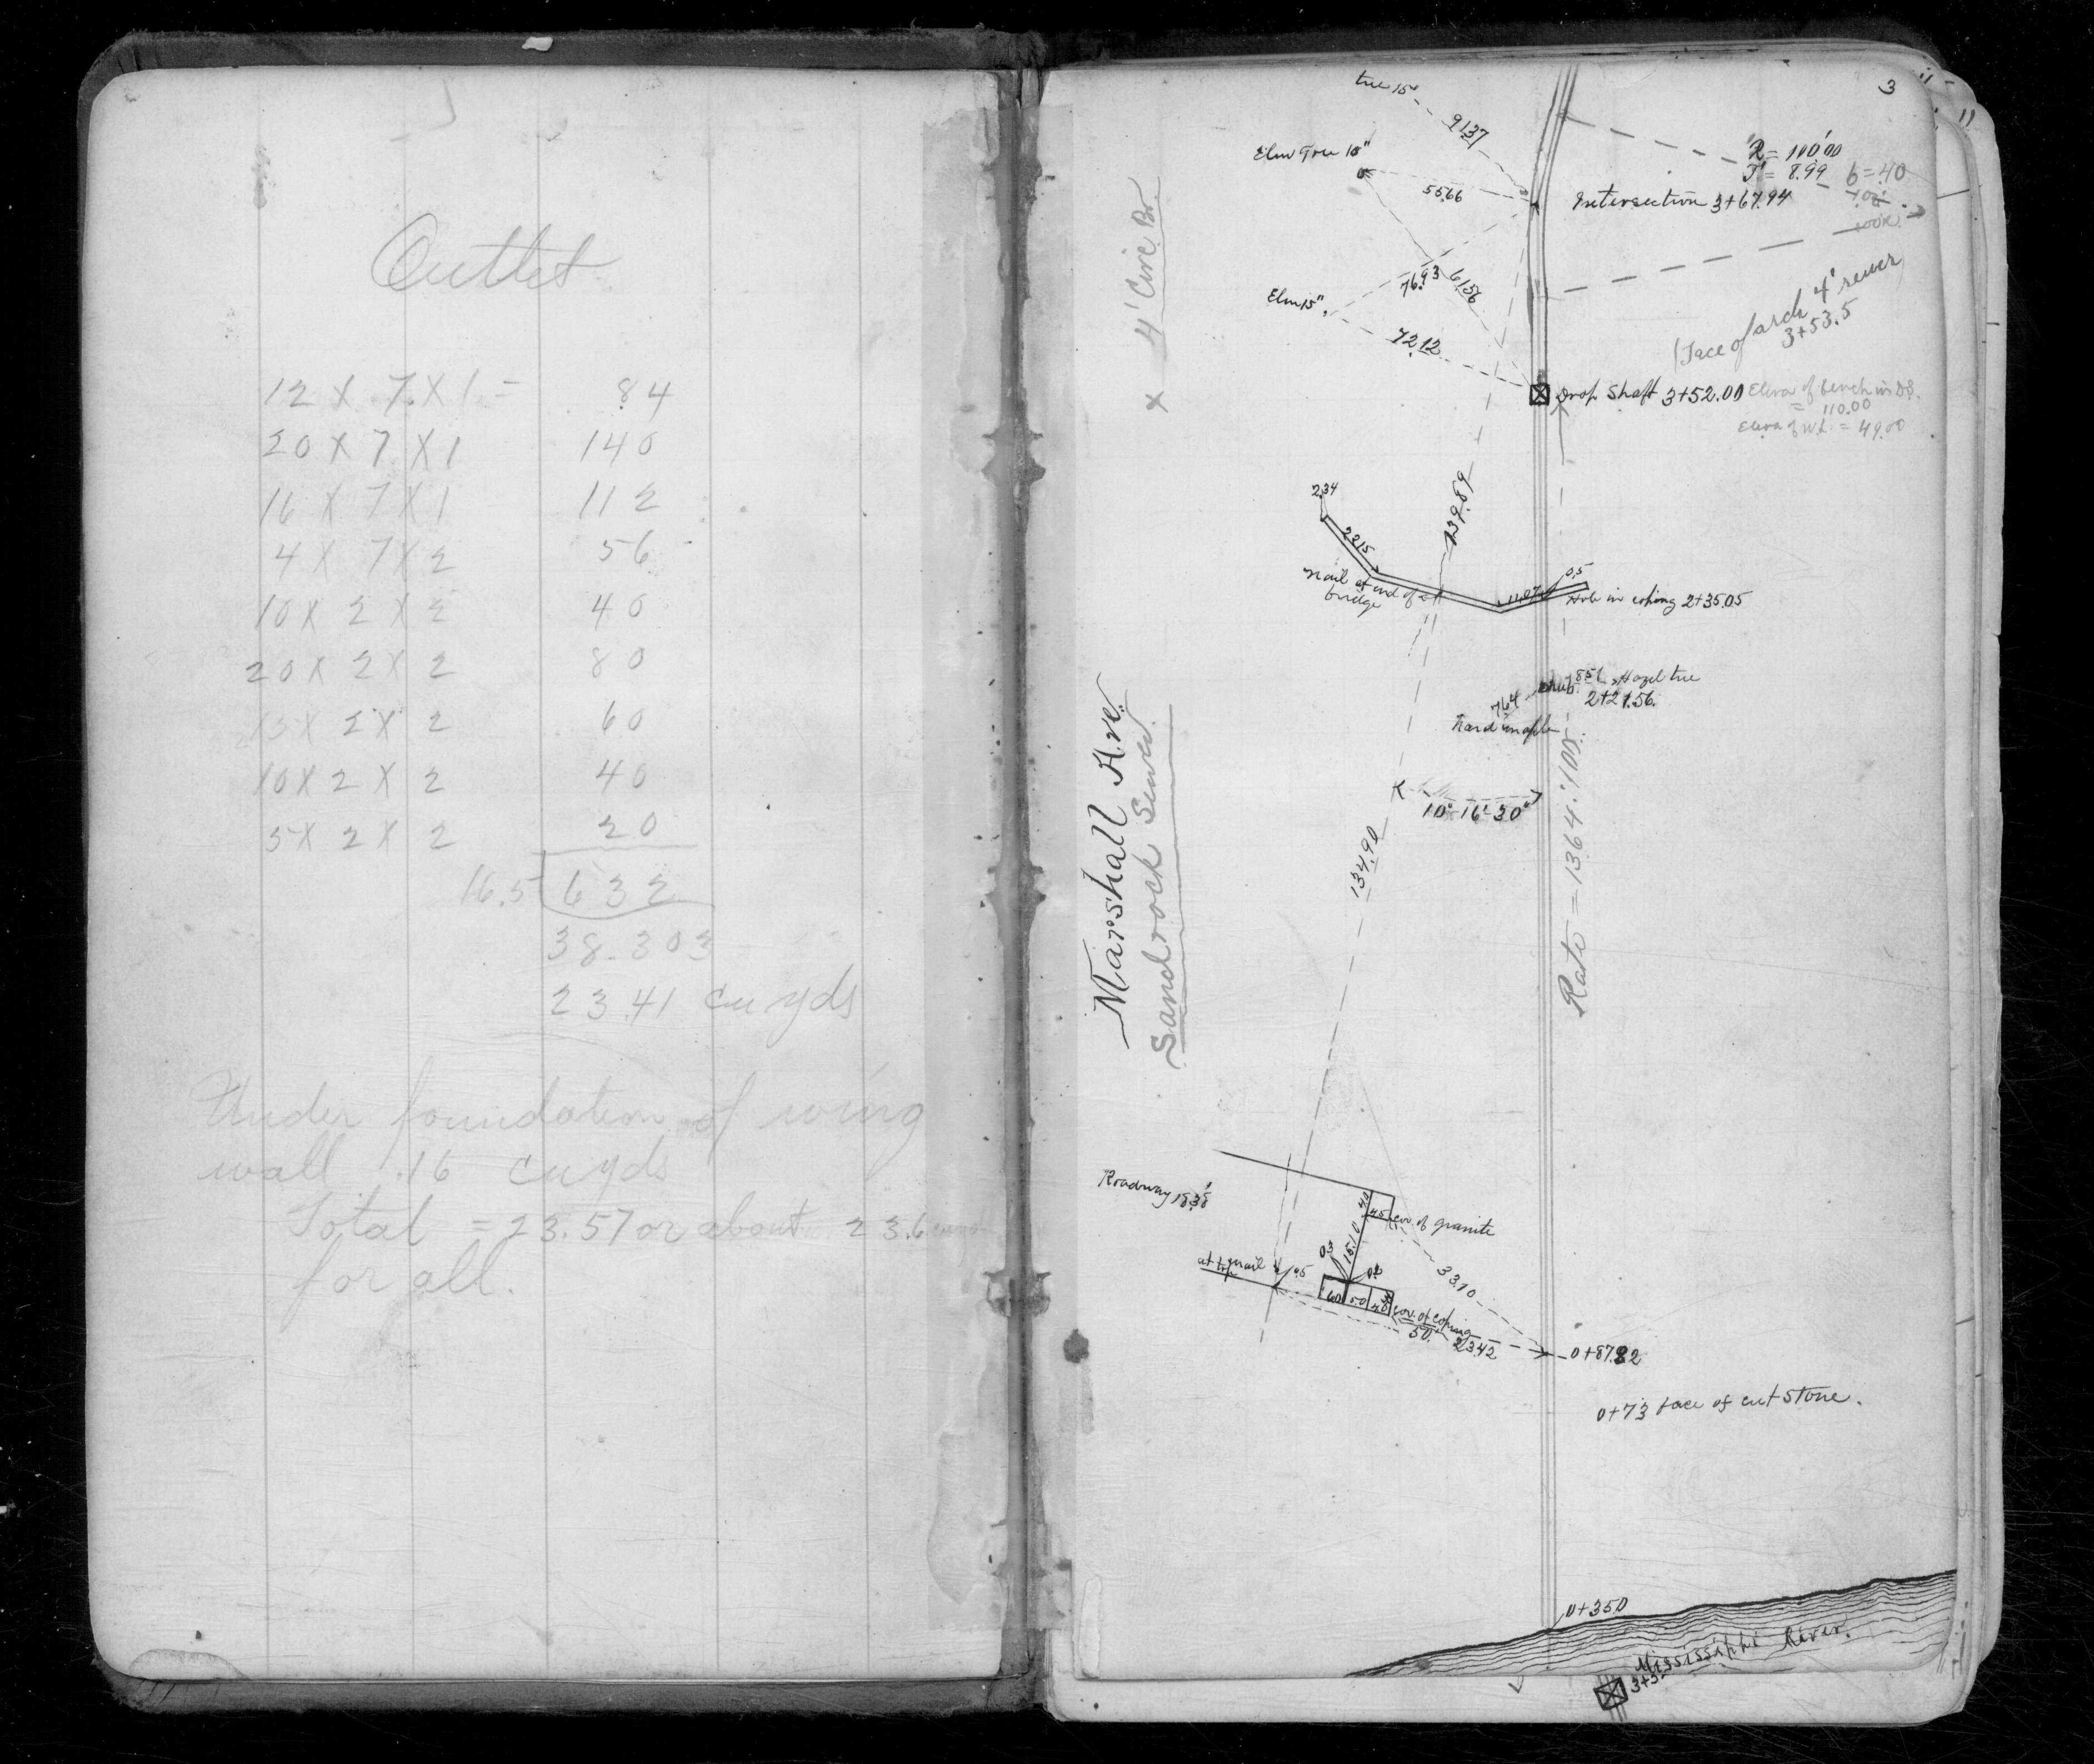 Outlet
12 X 7 X 1 - 84
20 X 7 X 1 140
16 X 7 X 1 112
4 X 7 X 2 56 -
10 X 2 X 2 40
20 X 2 X 2 80
15 X 2 X 2 60
10 X 2 X 2 40
5 X 2 X 2 20
16.5 632
38.303
23.41 cu yds
Under foundation of wing
wall .16 cu yds
Total = 23.57 or about 23.6
for all.
3
tree 15"
91.37
Elm Tree 18"
55.66
R = 100.00
T = 8.99
b = 40
Intersection 3+67.94
4' Circ. Br.
x
76.93
61.56
Elm 15"
72.12
Face of arch 4' sewer
3+53.5
Drop Shaft 3+52.00
Eleva of bench in D.S.
= 110.00
Eleva of W.L. = 49.00
2.34
22.15
139.89
Nail at end of
bridge
11.07
0.5
Hole in coping 2+35.05
8.51 Hazel tree
2+21.56
7.64
hard maple
10°-16'-30"
Rate = 1.364:100
134.90
Marshall Ave.
Sandrock Sewer
Roadway 18.38'
4.0
4.5
cor of granite
15.10
0.3
33.10
nail
0.5
6.0
5.0
4.0
cor. of coping
50.
23.42
0+87.82
0+73 face of cut stone.
0+35.0
Mississippi River.
3+3